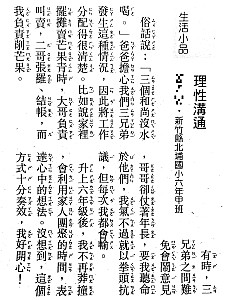 生活小品
理性溝通
・新竹縣北埔國小六年甲班
俗話說：「三個和尚沒水
喝。」爸爸擔心我們三兄弟
發生這種情況，因此將工作
分配得很清楚。比如說家裡
擺攤賣芒果青時，大哥負責
叫賣，二哥張羅、結帳，而
我負責削芒果。
有時，三
兄弟之間難
免會意見
哥哥卻仗著年長，要我聽命
於他們，我氣不過就以拳頭抗
議，但每次我都會輸。
升上六年級後，我不再莽撞
，會利用家人團聚的時間，表
達心中的想法。沒想到，這個
方式十分奏效，我好開心！